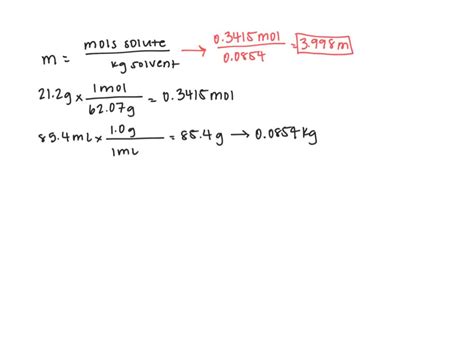 m = mols solute / kg solvent → 0.3415 mol / 0.0854 = 3.998 m
21.2g × 1 mol / 62.07g = 0.3415 mol
85.4 mL × 1.0 g / 1 mL = 85.4 g → 0.0854 kg